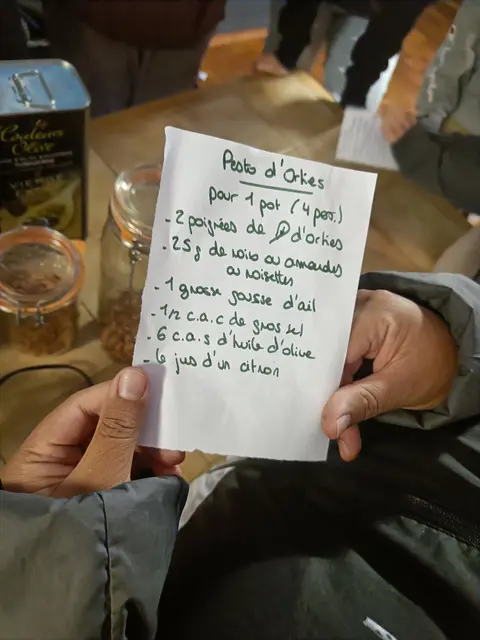 Couleurs
Olive
VIERGE
Pesto d'Orties
pour 1 pot (4 pers.)
- 2 poignées de d'orties
- 25g de noix ou amandes
ou noisettes
- 1 grosse gousse d'ail
- 1/2 c.a.c de gros sel
- 6 c.a.s d'huile d'olive
- le jus d'un citron